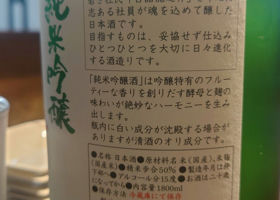 純米吟醸
志ある社員が魂を込めて醸した
日本酒です。
目指すものは、妥協せず仕込み
ひとつひとつを大切に日々進化
する酒造りです。
「純米吟醸酒」は吟醸特有のフルー
ティーな香りを創りだす酵母と麹の
味わいが絶妙なハーモニーを生み
出します。
瓶内に白い成分が沈殿する場合が
ありますが清酒のオリ成分です。
●名称 日本酒●原材料名 米(国産)、米麹
(国産米)●精米歩合50% ●製造年月は枠
下部へ ●アルコール分15度 ●お酒は二十歳
になってから●内容量1800ml
●保存方法 冷蔵庫にて保存